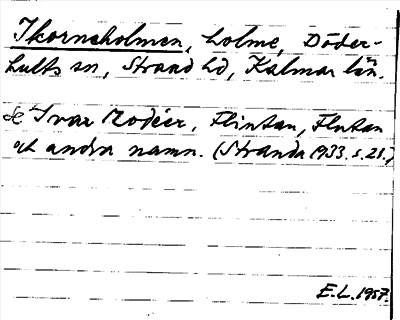 Ikorneholmen, holme, Döder-
hults sn, Strand hd, Kalmar län.
Se Ivar Modéer, Flintan, Flutan
och andra namn. (Stranda 1933. s. 21.)
E.L. 1957.